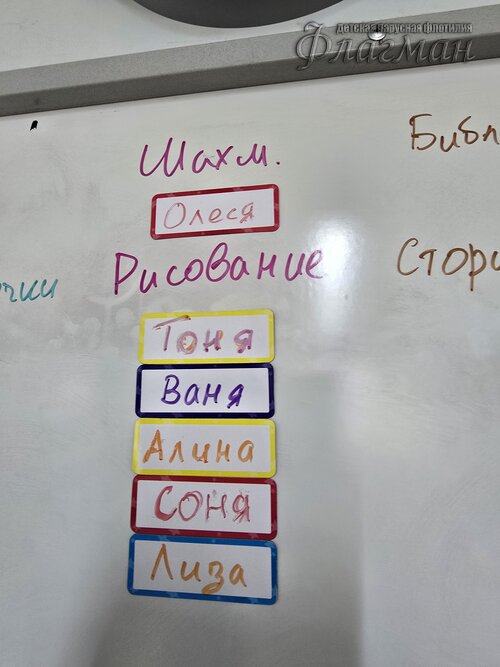 детская парусная флотилия
Флагман
Шахм.
Олеся
Рисование
Тоня
Ваня
Алина
Соня
Лиза